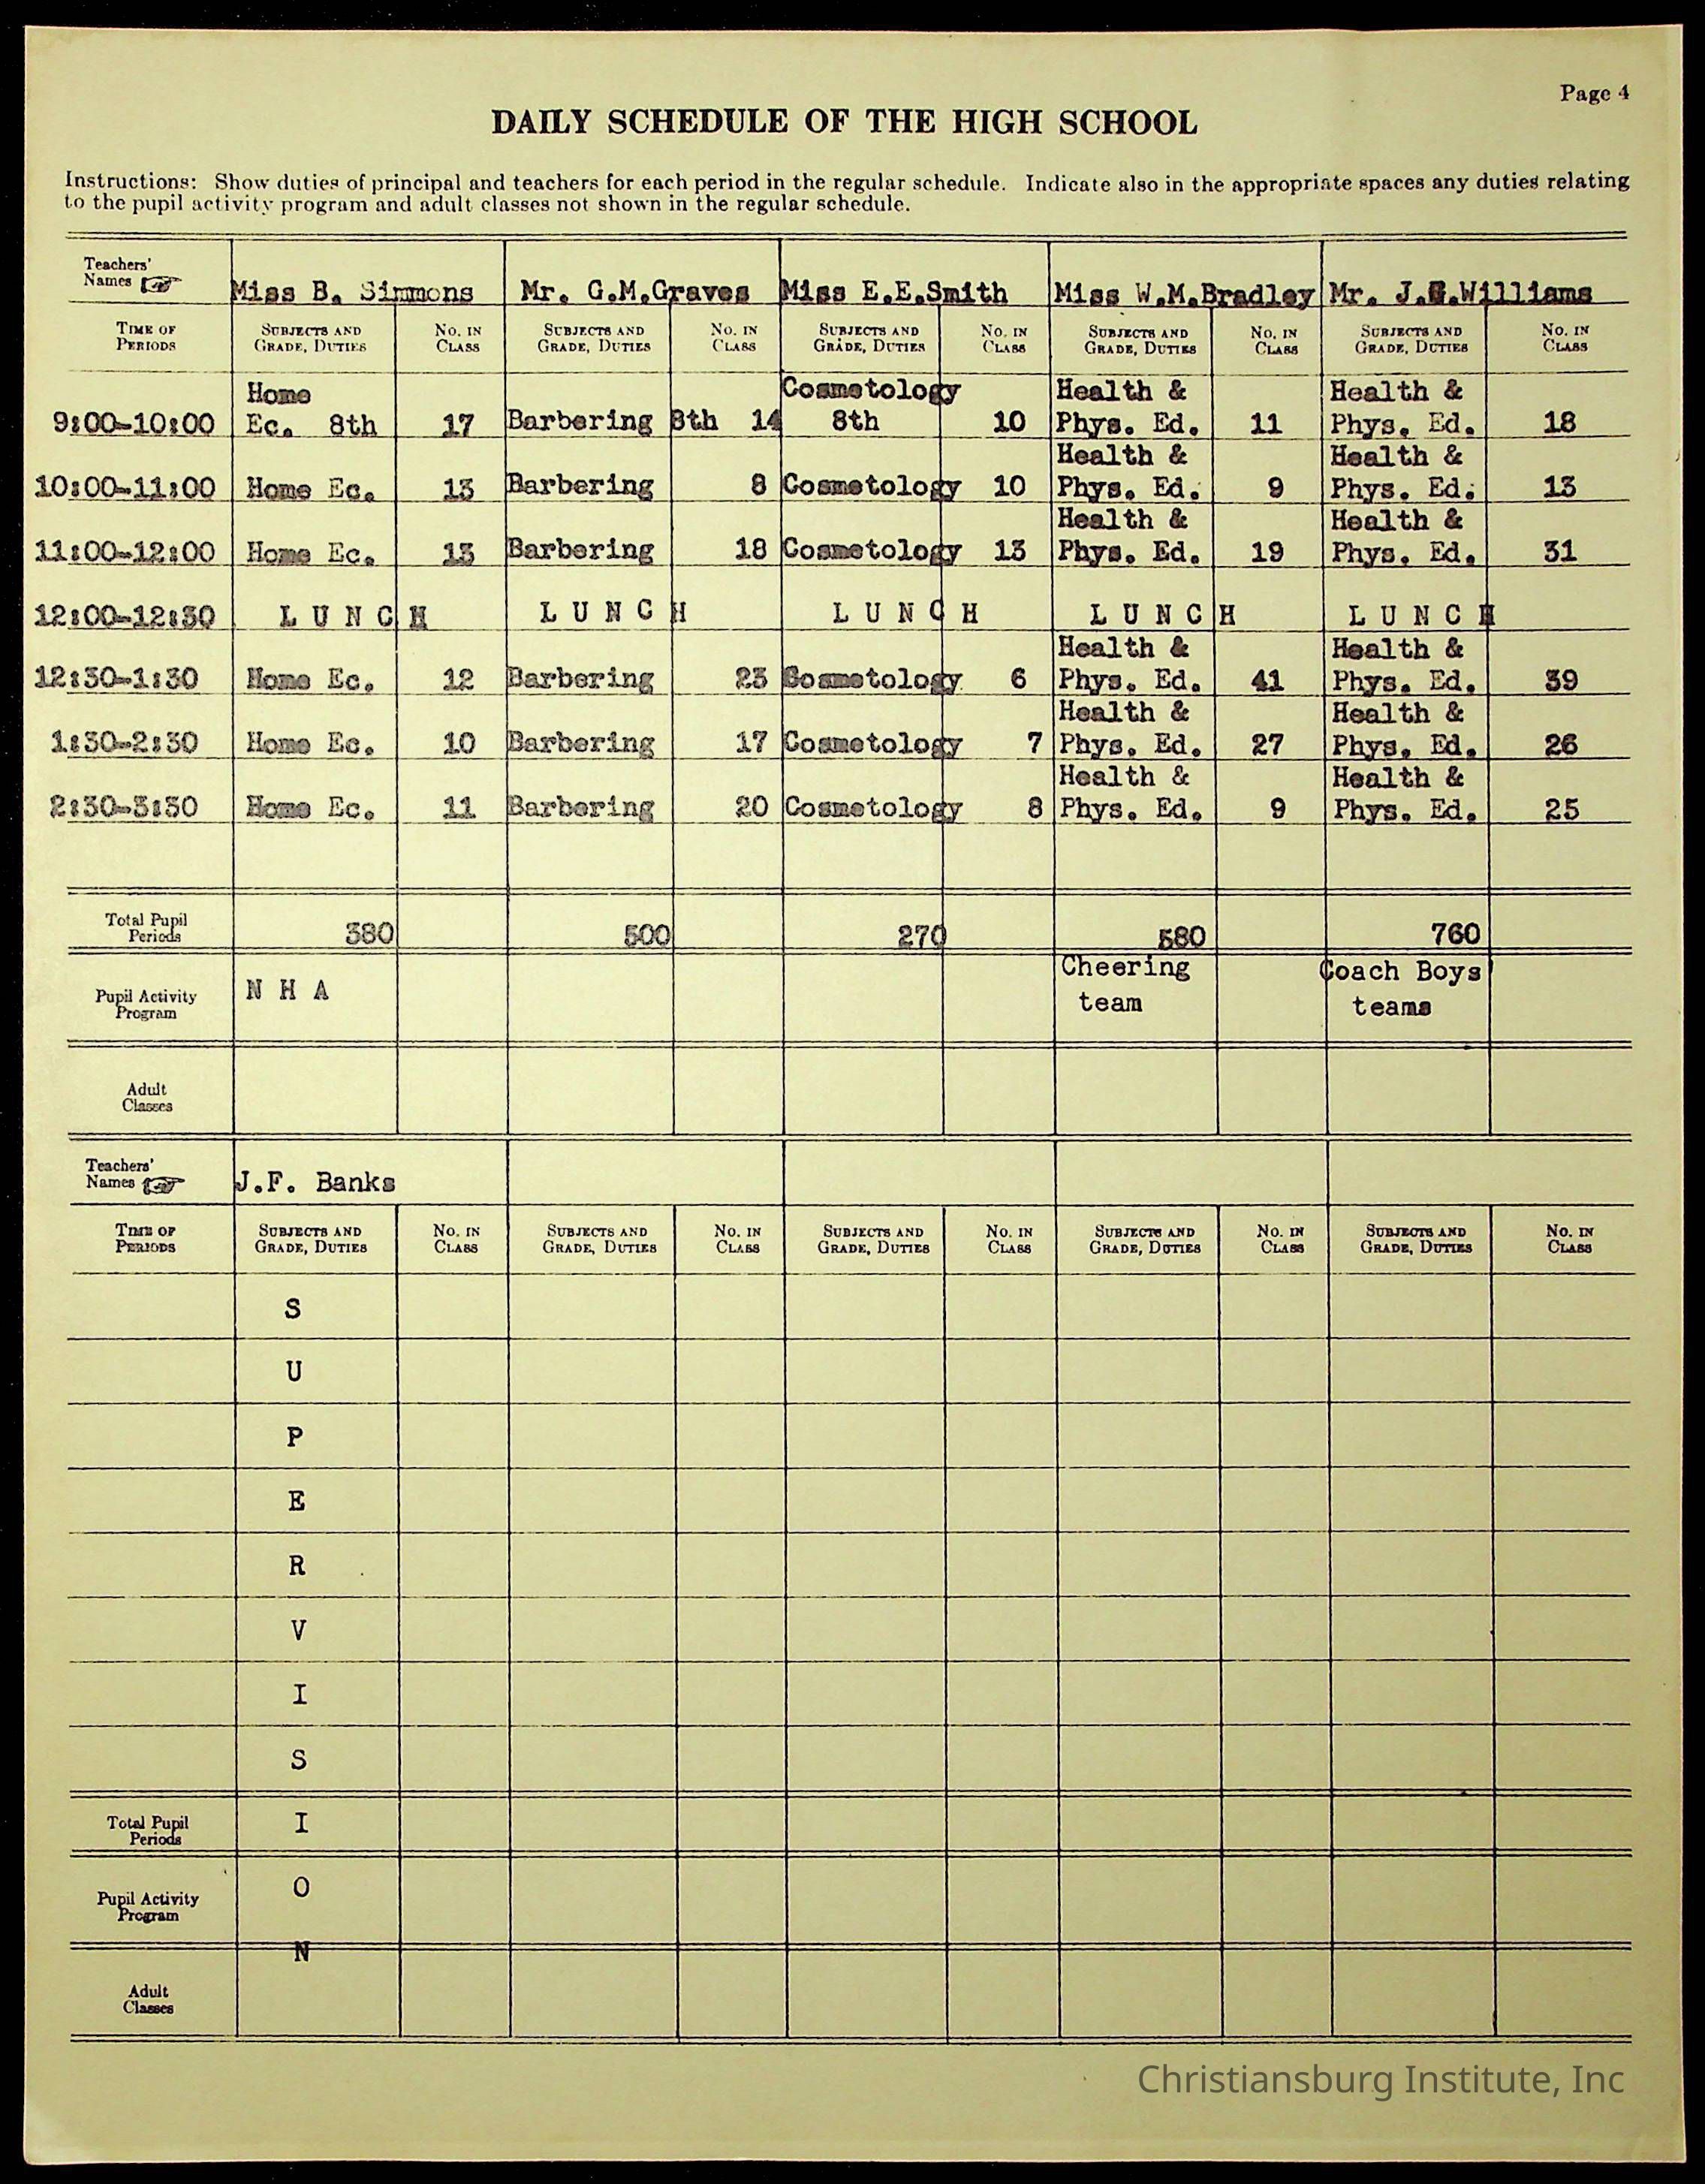 Page 4
DAILY SCHEDULE OF THE HIGH SCHOOL
Instructions: Show duties of principal and teachers for each period in the regular schedule. Indicate also in the appropriate spaces any duties relating
to the pupil activity program and adult classes not shown in the regular schedule.
Teachers' Names Miss B. Simmons Mr. G.M.Graves Miss E.E.Smith Miss W.M.Bradley Mr. J. Williams
TIME OF PERIODS SUBJECTS AND GRADE, DUTIES NO. IN CLASS SUBJECTS AND GRADE, DUTIES NO. IN CLASS SUBJECTS AND GRADE, DUTIES NO. IN CLASS SUBJECTS AND GRADE, DUTIES NO. IN CLASS SUBJECTS AND GRADE, DUTIES NO. IN CLASS
9:00-10:00 Home Ec. 8th 17 Barbering 8th 14 Cosmetology 8th 10 Health & Phys. Ed. 11 Health & Phys. Ed. 18
10:00-11:00 Home Ec. 13 Barbering 8 Cosmetology 10 Health & Phys. Ed. 9 Health & Phys. Ed. 13
11:00-12:00 Home Ec. 13 Barbering 18 Cosmetology 13 Health & Phys. Ed. 19 Health & Phys. Ed. 31
12:00-12:30 L U N C H L U N C H L U N C H L U N C H L U N C H
12:30-1:30 Home Ec. 12 Barbering 23 Cosmetology 6 Health & Phys. Ed. 41 Health & Phys. Ed. 39
1:30-2:30 Home Ec. 10 Barbering 17 Cosmetology 7 Health & Phys. Ed. 27 Health & Phys. Ed. 26
2:30-3:30 Home Ec. 11 Barbering 20 Cosmetology 8 Health & Phys. Ed. 9 Health & Phys. Ed. 25
Total Pupil Periods 380 500 270 580 760
Pupil Activity Program N H A Cheering team Coach Boys teams
Adult Classes
Teachers' Names J.F. Banks
TIME OF PERIODS SUBJECTS AND GRADE, DUTIES NO. IN CLASS SUBJECTS AND GRADE, DUTIES NO. IN CLASS SUBJECTS AND GRADE, DUTIES NO. IN CLASS SUBJECTS AND GRADE, DUTIES NO. IN CLASS SUBJECTS AND GRADE, DUTIES NO. IN CLASS
S
U
P
E
R
V
I
S
Total Pupil Periods I
Pupil Activity Program O
N
Adult Classes
Christiansburg Institute, Inc